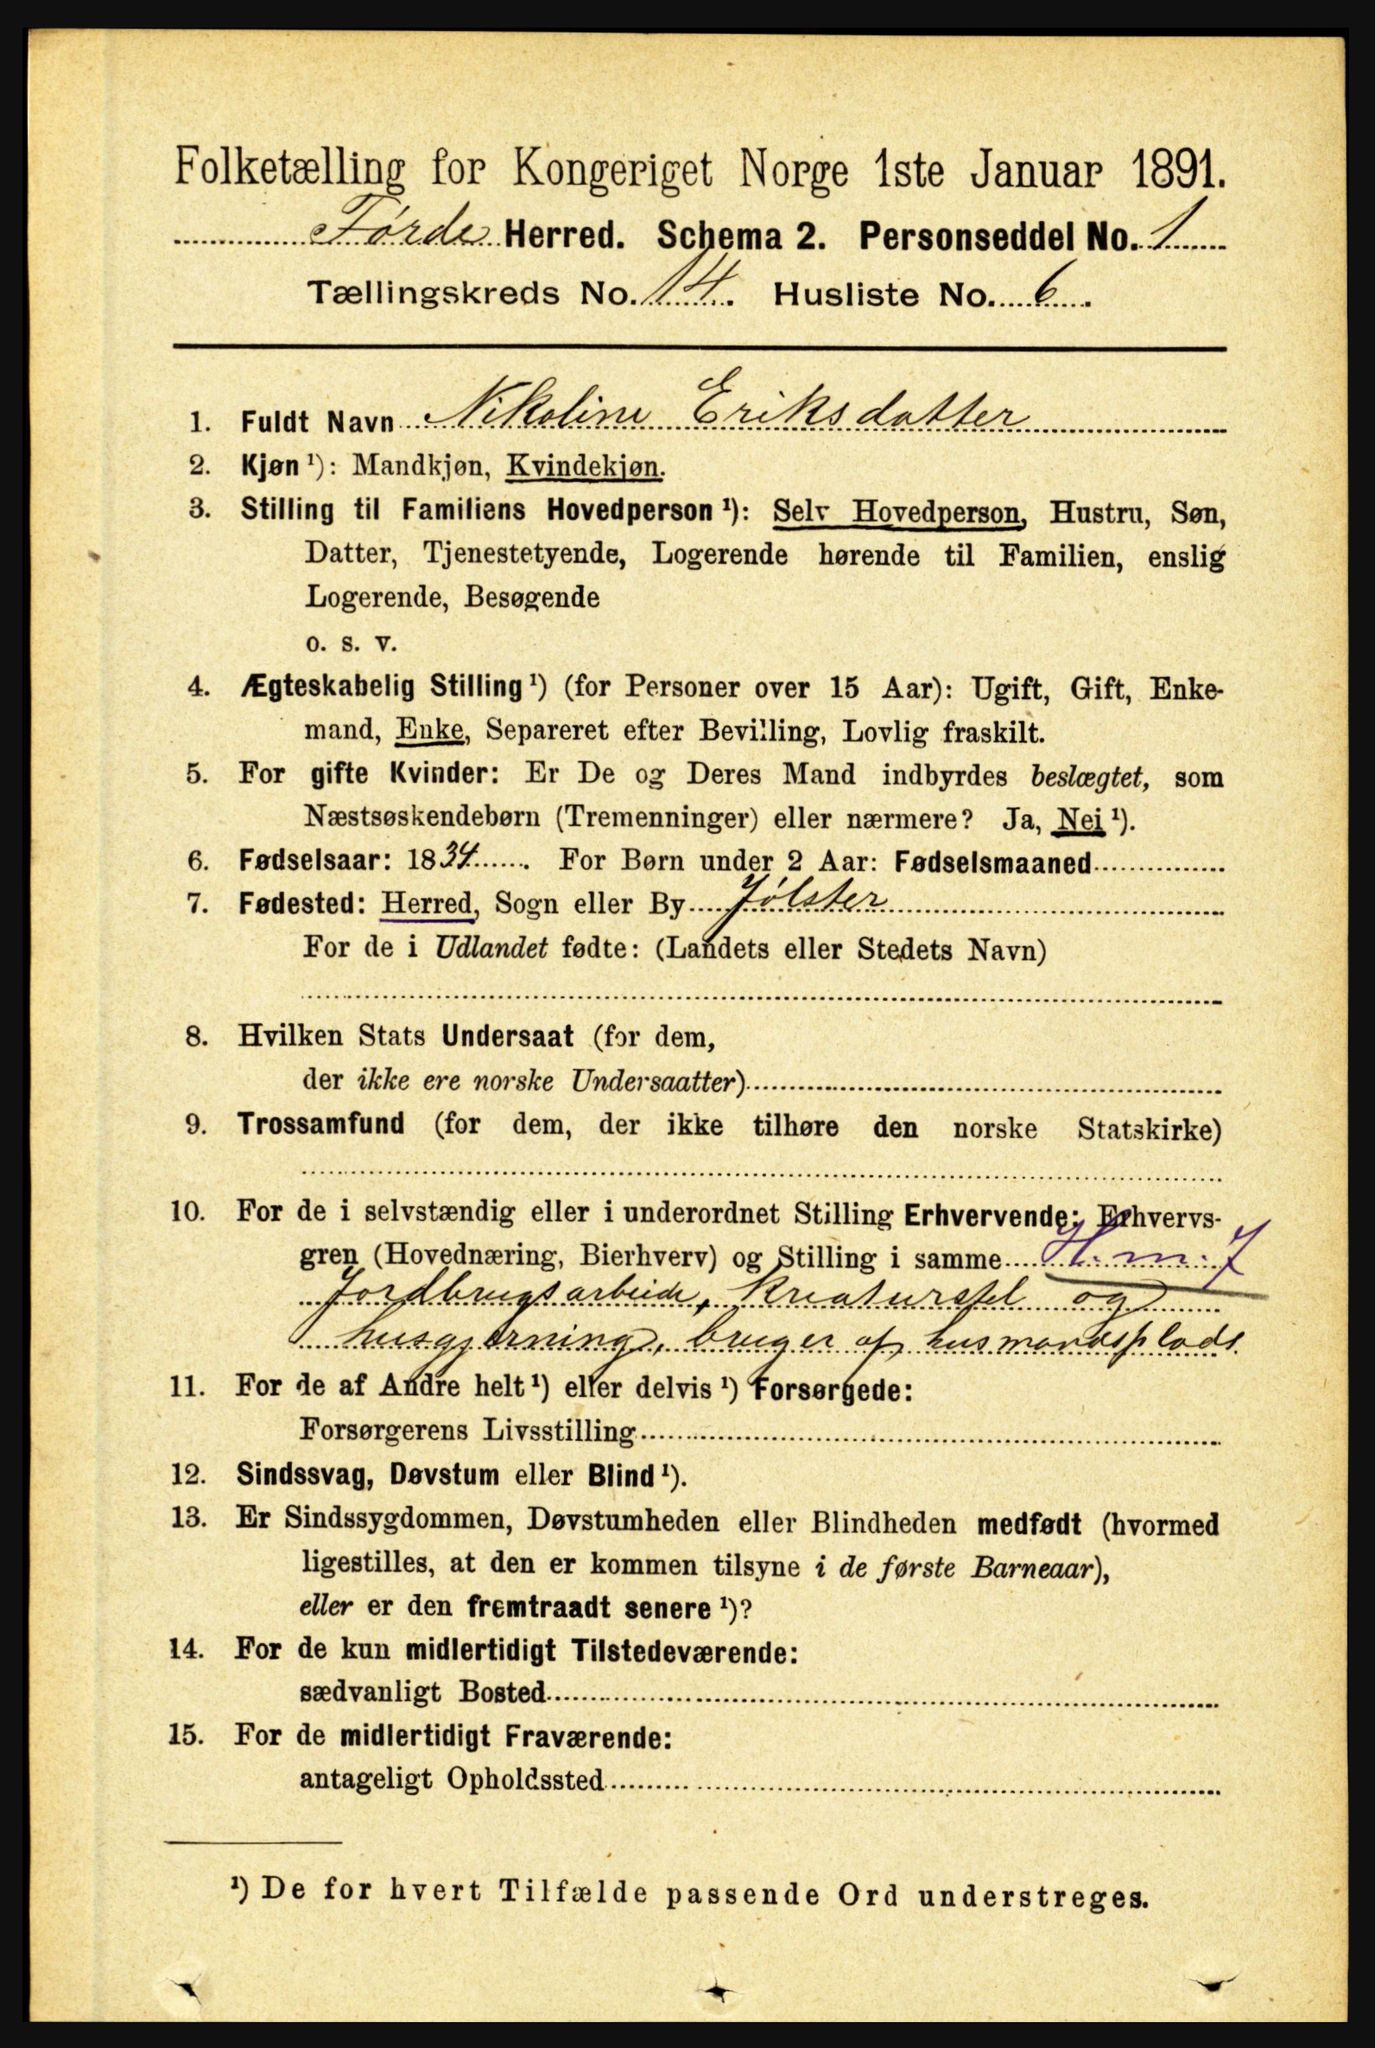 Folketælling for Kongeriget Norge 1ste Januar 1891.
Førde Herred. Schema 2. Personseddel No. 1
Tællingskreds No. 14. Husliste No. 6.
1. Fuldt Navn Nikoline Eriksdatter
2. Kjøn ¹): Mandkjøn, Kvindekjøn.
3. Stilling til Familiens Hovedperson ¹): Selv Hovedperson, Hustru, Søn,
Datter, Tjenestetyende, Logerende hørende til Familien, enslig
Logerende, Besøgende
o. s. v.
4. Ægteskabelig Stilling ¹) (for Personer over 15 Aar): Ugift, Gift, Enke-
mand, Enke, Separeret efter Bevilling, Lovlig fraskilt.
5. For gifte Kvinder: Er De og Deres Mand indbyrdes beslægtet, som
Næstsøskendebørn (Tremenninger) eller nærmere? Ja, Nei ¹).
6. Fødselsaar: 1834. For Børn under 2 Aar: Fødselsmaaned
7. Fødested: Herred, Sogn eller By Jølster
For de i Udlandet fødte: (Landets eller Stedets Navn)
8. Hvilken Stats Undersaat (for dem,
der ikke ere norske Undersaatter)
9. Trossamfund (for dem, der ikke tilhøre den norske Statskirke)
10. For de i selvstændig eller i underordnet Stilling Erhvervende: Erhvervs-
gren (Hovednæring, Bierhverv) og Stilling i samme H. m. J
Jordbrugsarbeide, kreaturstel og
husgjerning, bruger af husmandsplads
11. For de af Andre helt ¹) eller delvis ¹) Forsørgede:
Forsørgerens Livsstilling
12. Sindssvag, Døvstum eller Blind ¹).
13. Er Sindssygdommen, Døvstumheden eller Blindheden medfødt (hvormed
ligestilles, at den er kommen tilsyne i de første Barneaar),
eller er den fremtraadt senere ¹)?
14. For de kun midlertidigt Tilstedeværende:
sædvanligt Bosted
15. For de midlertidigt Fraværende:
antageligt Opholdssted
¹) De for hvert Tilfælde passende Ord understreges.